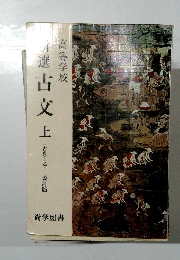 高等学校
選
古文
上
尚学図書